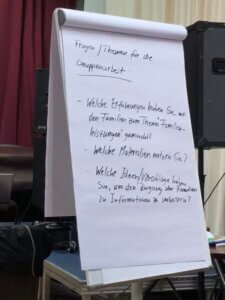 Fragen / Themen für die
Gruppenarbeit.
- Welche Erfahrungen haben Sie mit
den Familien zum Thema "Familien-
leistungen" gemacht?
- Welche Materialien nutzen Sie?
- Welche Ideen/Vorschläge haben
Sie, um den Zugang der Familien
zu Informationen zu verbessern?